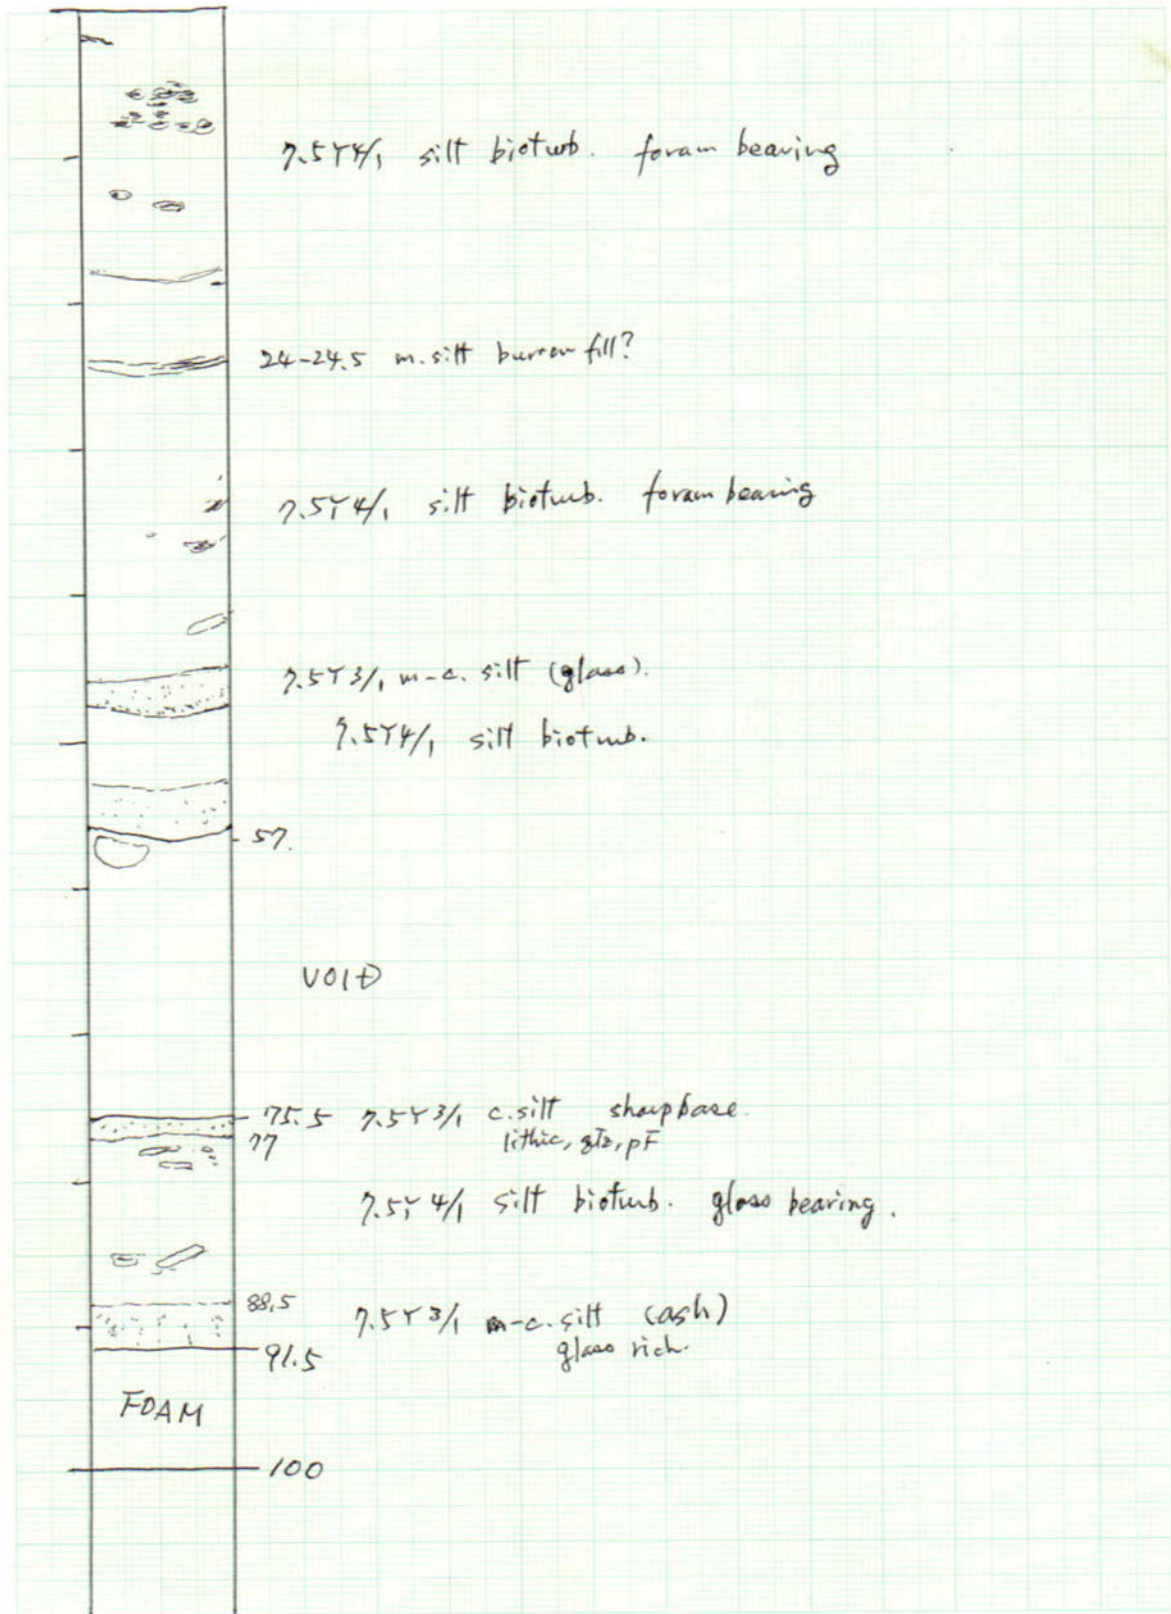 7.5Y4/1 silt bioturb. foram bearing
24-24.5 m.silt burrow fill?
7.5Y4/1 silt bioturb. foram bearing
7.5Y3/1 m-c. silt (glass).
7.5Y4/1 silt bioturb.
57.
VOID
75.5 7.5Y3/1 c.silt sharp base.
77 lithic, qtz, pF
7.5Y4/1 silt bioturb. glass bearing.
88.5
7.5Y3/1 m-c. silt (ash)
glass rich.
91.5
FOAM
100